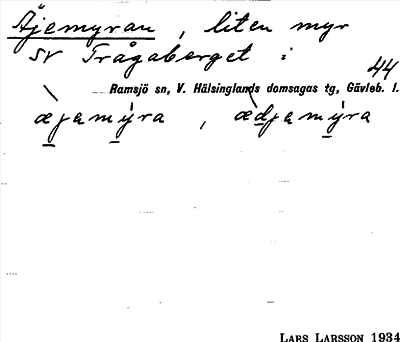 Äjemyran, liten myr
SV Trågaberget i
44
Ramsjö sn, V. Hälsinglands domsagas tg, Gävleb. l.
æ̀jamýra, æ̀djamýra
LARS LARSSON 1934